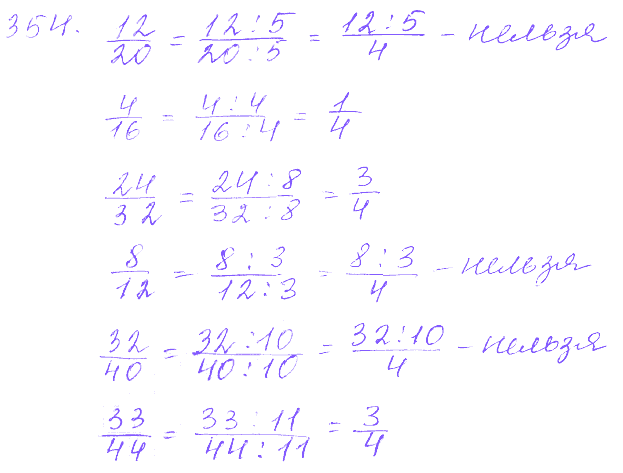 354. 12/20 = 12:5/20:5 = 12:5/4 – нельзя
4/16 = 4:4/16:4 = 1/4
24/32 = 24:8/32:8 = 3/4
8/12 = 8:3/12:3 = 8:3/4 – нельзя
32/40 = 32:10/40:10 = 32:10/4 – нельзя
33/44 = 33:11/44:11 = 3/4